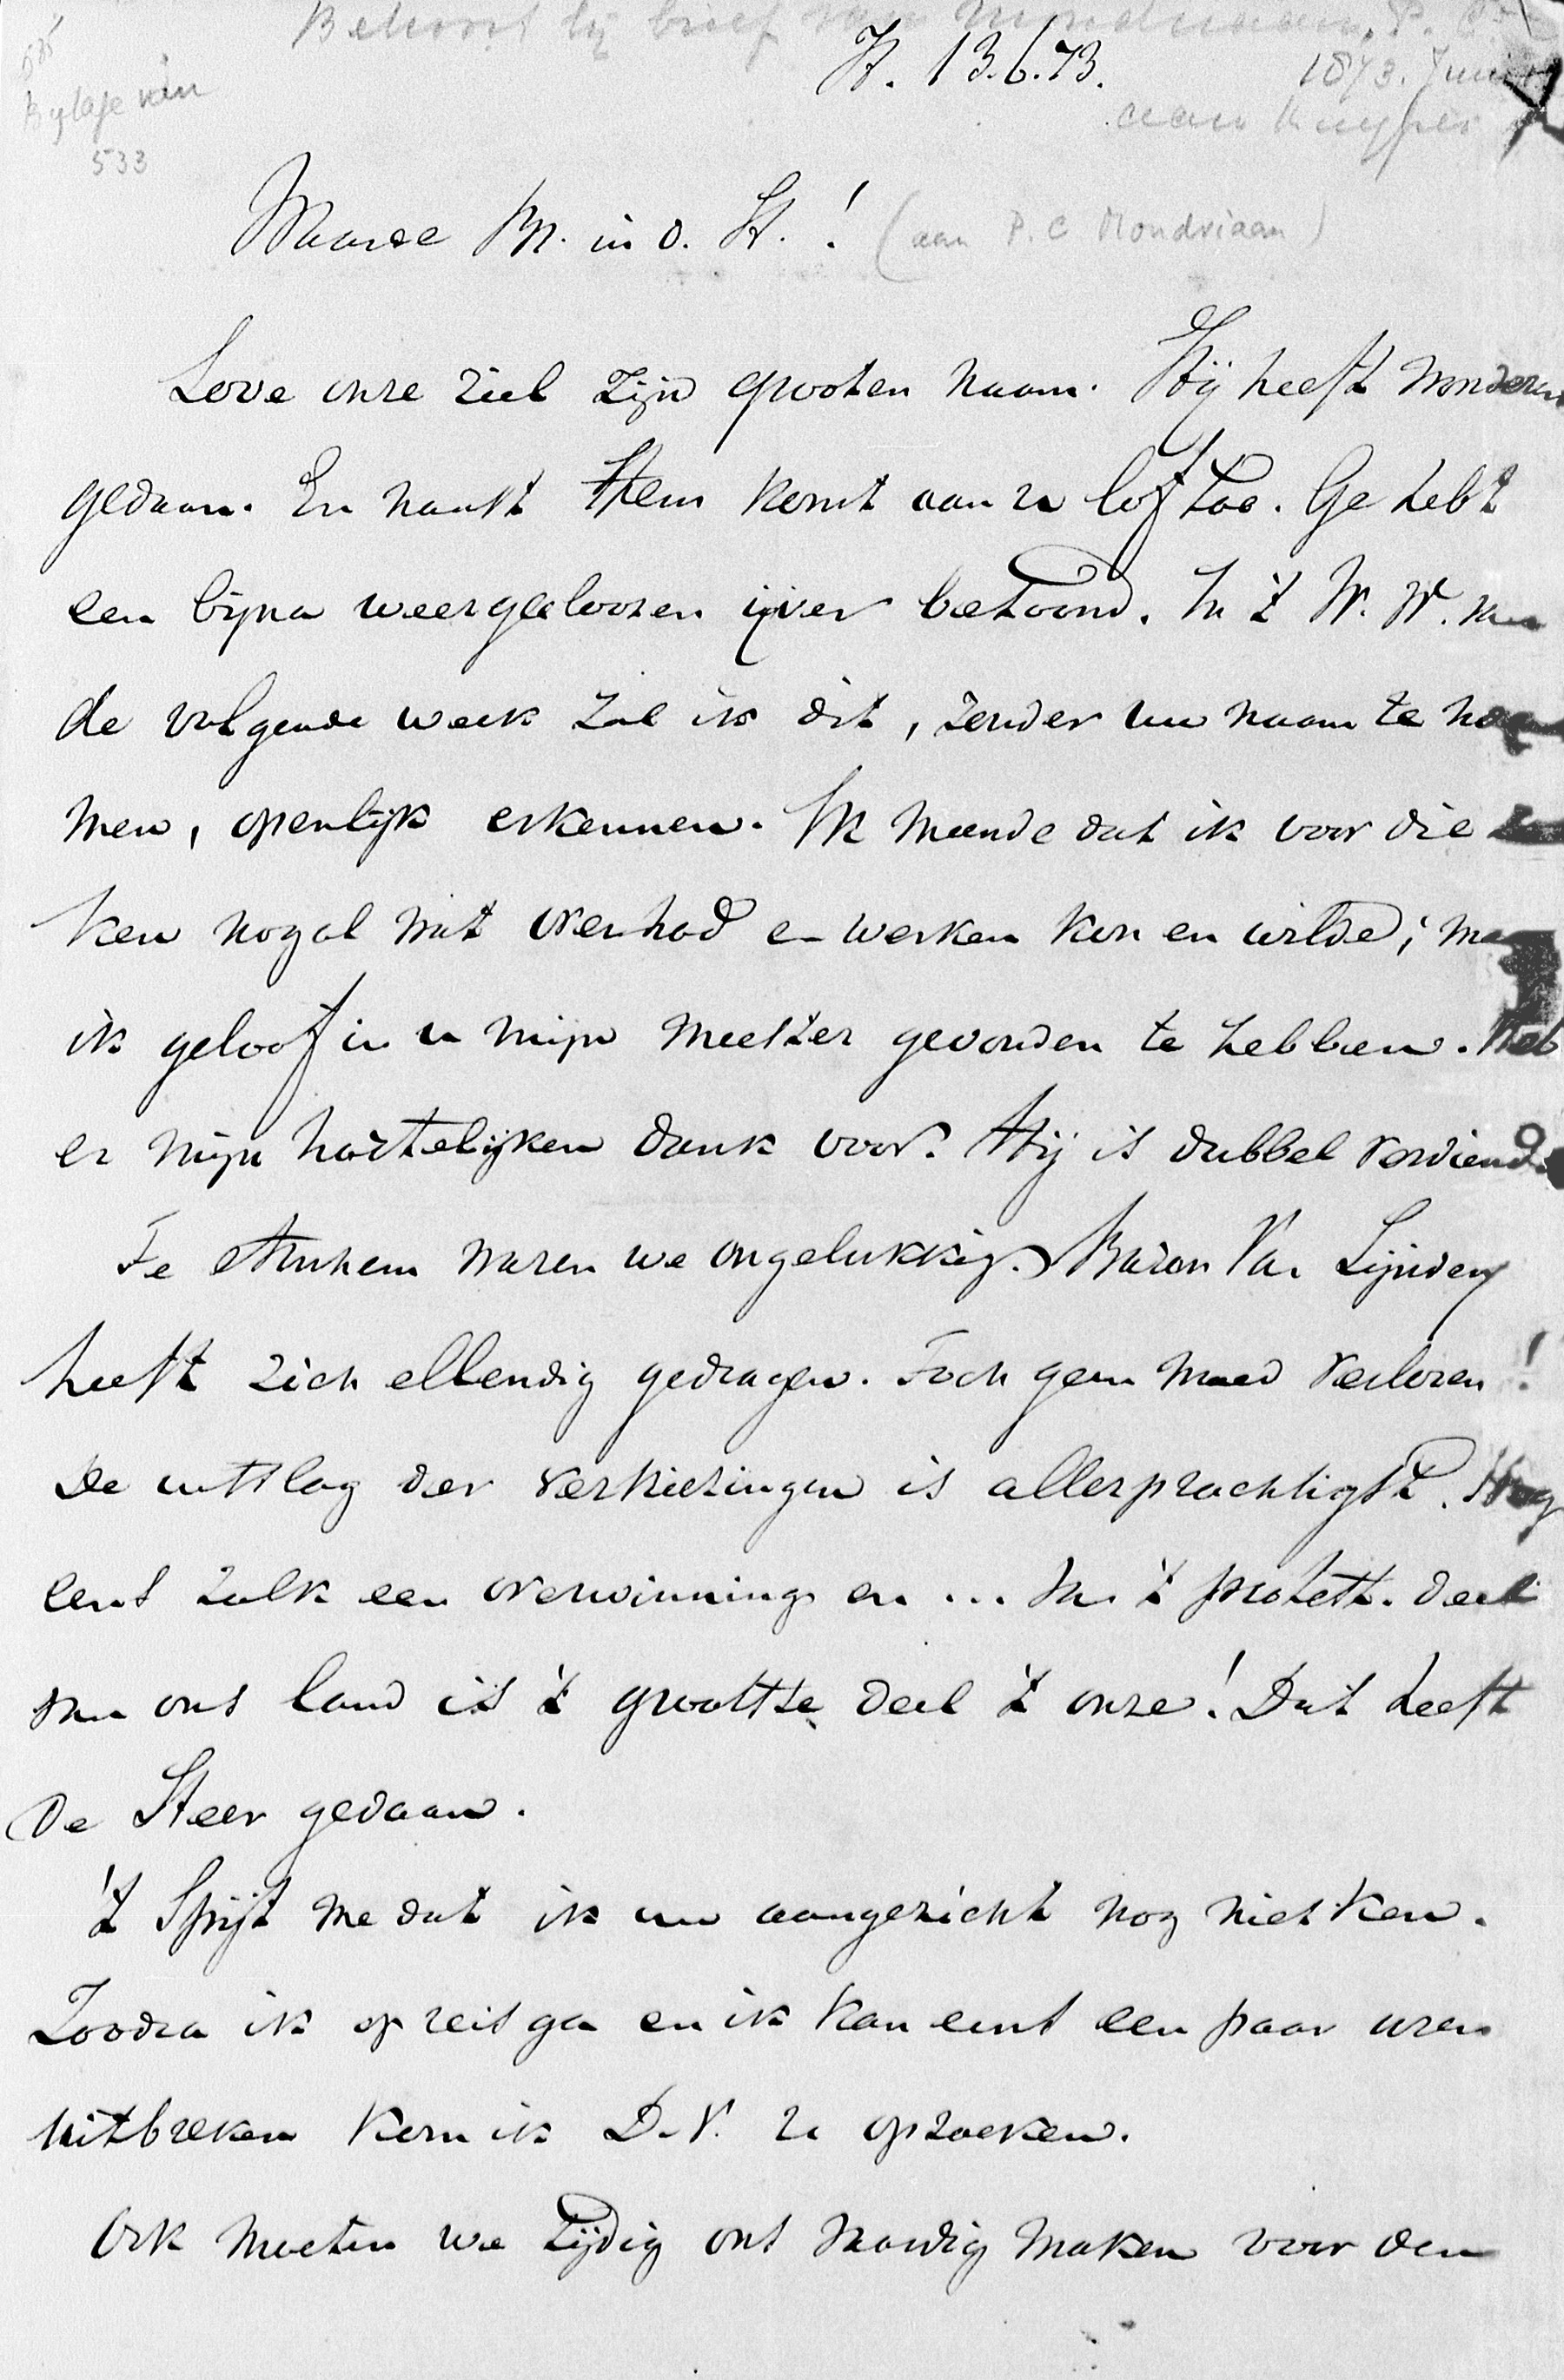 Behoort bij brief van Mondriaan, P. C.
535
Bylage van
533
H. 13.6.73.
1873. Juni
aan Kuyper
Waarde Br. in o. H.! (aan P. C Mondriaan)
Love onze ziel zijn grooten naam. Hij heeft wonderen
gedaan. En naast Hem komt aan u lof toe. Ge hebt
een bijna weergaloozen ijver betoond. In 't W. W. van
de volgende week zal ik dit, zonder uw naam te noe
men, openlijk erkennen. Ik meende dat ik voor die
ken nogal wat overhad en werken kon en wilde; maar
ik geloof in u mijn meester gevonden te hebben. Heb
er mijn hartelijken dank voor. Hij is dubbel verdiend.
Te Arnhem waren we ongelukkig. Baron Van Lijnden
heeft zich ellendig gedragen. Toch geen moed verloren!
De uitslag der verkiezingen is allerprachtigst. Nog
eens zulk een overwinning en ... In 't protest. deel
van ons land is 't grootste deel 't onze! Dat heeft
de Heer gedaan.
't Spijt me dat ik uw aangezicht nog niet ken.
Zoodra ik op reis ga en ik kan eens een paar uren
uitbreken kom ik D.V. u opzoeken.
Ook moeten we tijdig ons vaardig maken voor den